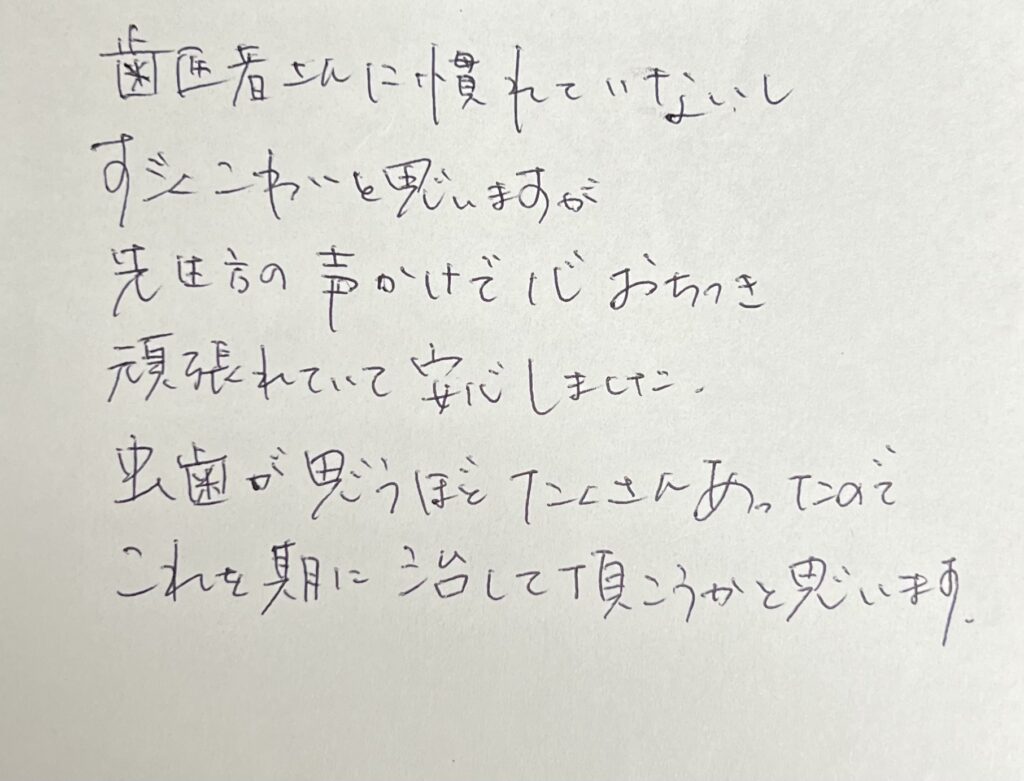 歯医者さんに慣れていないし
すごくこわいと思いますが
先生方の声かけで心おちつき
頑張れていて安心しました.
虫歯が思うほどたくさんあったので
これを期に治して頂こうかと思います.